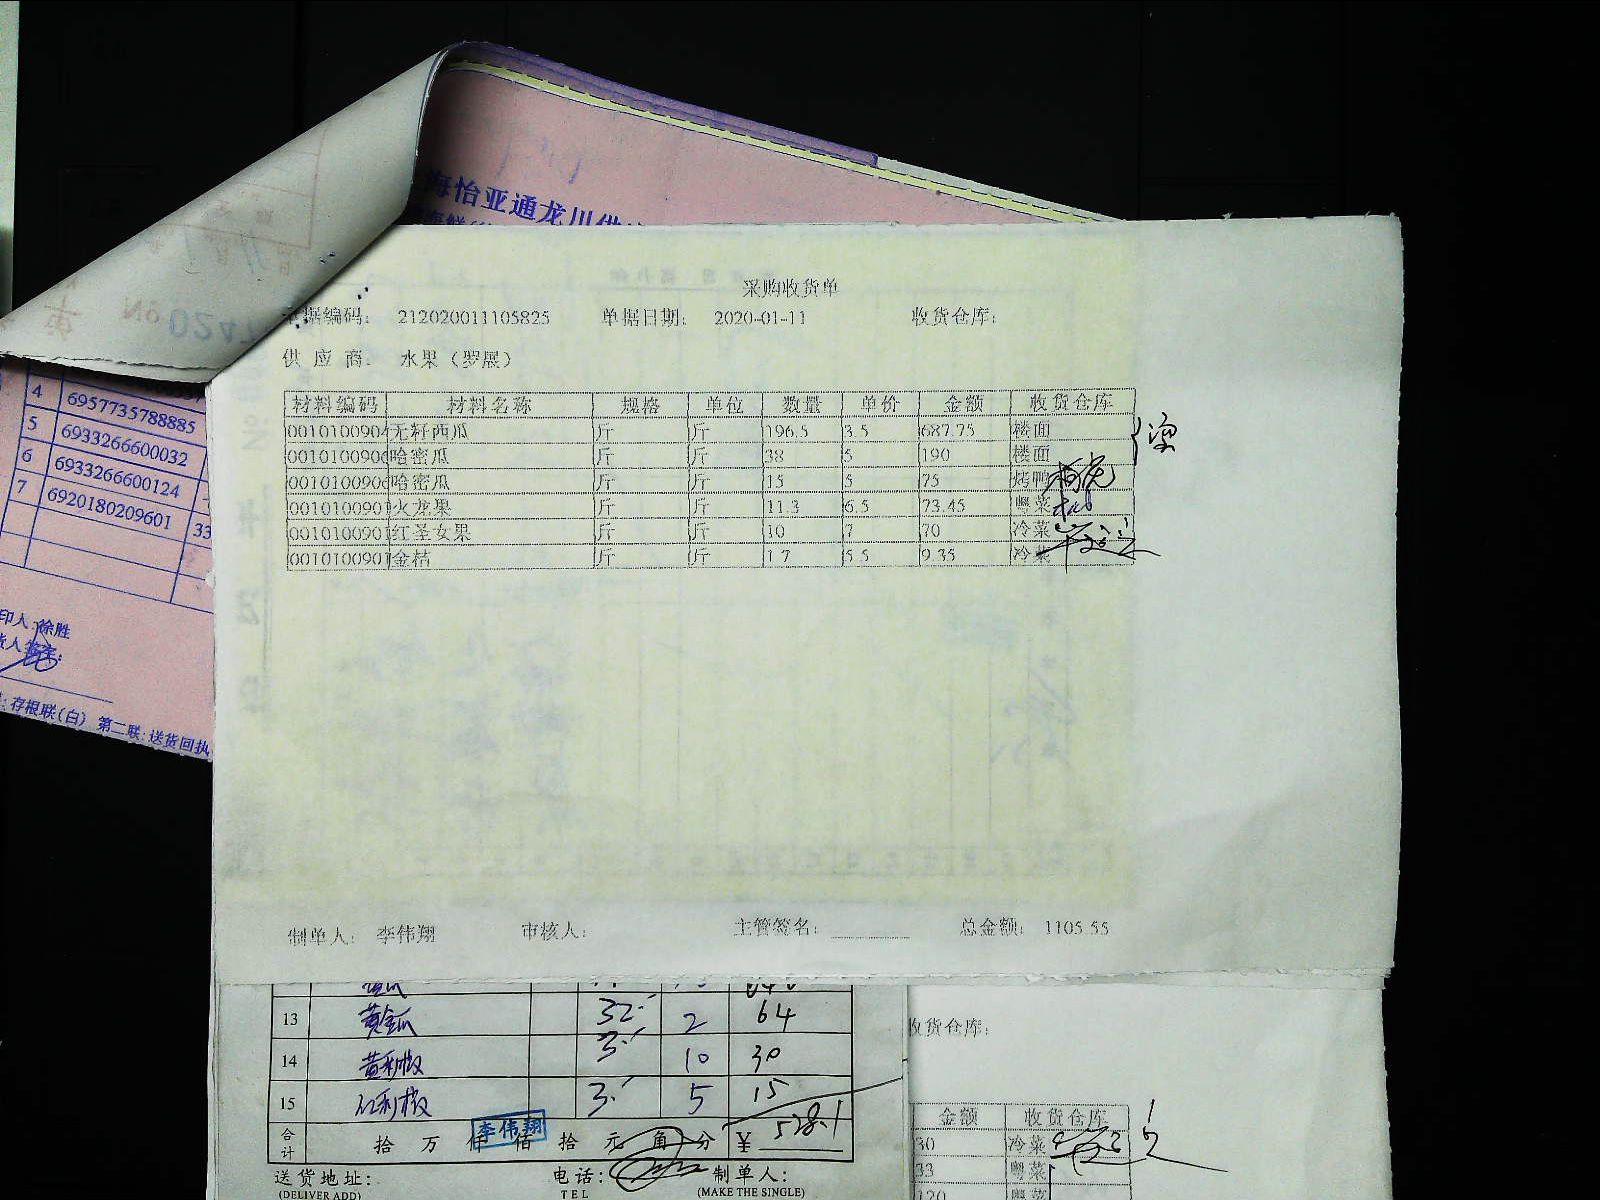 海怡亚通龙川供
0247
4 6957735788885
5 6933266600032
6 6933266600124
7 6920180209601 33
印人:徐胜
存根联(白) 第二联:送货回执
采购收货单
单据编码: 212020011105825 单据日期: 2020-01-11 收货仓库:
供 应 商: 水果（罗展）
材料编码 材料名称 规格 单位 数量 单价 金额 收货仓库
001010090 无籽西瓜 斤 斤 196.5 3.5 687.75 楼面
001010090 哈密瓜 斤 斤 38 5 190 楼面
001010090 哈密瓜 斤 斤 15 5 75 烤鸭
001010090 火龙果 斤 斤 11.3 6.5 73.45 粤菜
001010090 红圣女果 斤 斤 10 7 70 冷菜
001010090 金桔 斤 斤 1.7 5.5 9.35 冷菜
制单人: 李伟翔 审核人: 主管签名: 总金额: 1105.55
13 黄金瓜 32 2 64
14 黄利椒 3 10 30
15 红利椒 3 5 15
合计 拾 万 仟 佰 拾 元 角 分 ￥ 528.1
李伟翔
送货地址: 电话: 制单人:
(DELIVER ADD) TEL (MAKE THE SINGLE)
收货仓库:
金额 收货仓库
30 冷菜
33 粤菜
120 粤菜